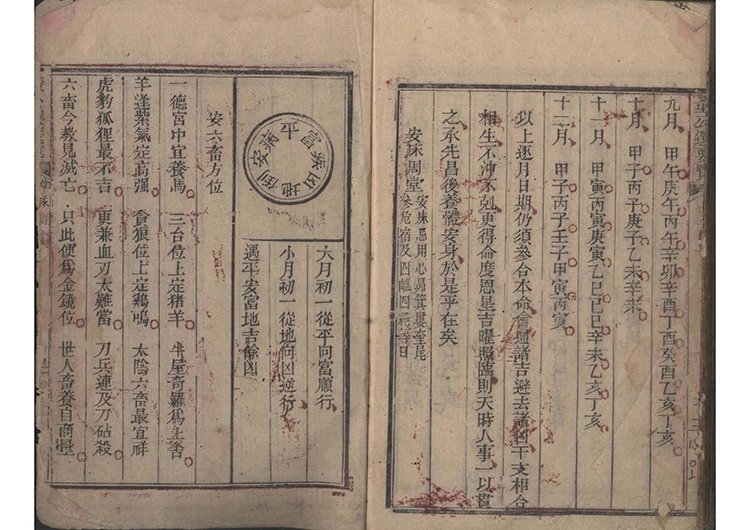 九月 甲午庚午丙午辛卯辛酉丁酉癸酉乙亥丁亥
十月 甲子丙子庚子乙未辛未
十一月 甲寅丙寅庚寅乙巳己巳辛未乙亥丁亥
十二月 甲子丙子壬子甲寅丙寅
以上逐月日期仍須參合本命會連諸吉避去諸凶干支相合
相生不沖不剋更得命度恩星吉曜照臨則天時人事一以貫
之承先昌後養體安身於是乎在矣
安床周堂
安床忌用心昴箕婁奎尾
參危宿及四離四絕等日
平富災凶地倒安病
大月初一從平向富順行
小月初一從地向凶逆行
遇平安富地吉餘凶
安六畜方位
一德宮中宜養馬 三台位上定猪羊 牛屋奇羅為上舍
羊逢紫氣定高强 會狼位上定鷄鳴 太陰六畜最宜祥
虎豹狐狸最不吉 更兼血刃太難當 刀兵連及刀砧殺
六畜今教見滅亡 只此便為金鏡位 世人畜養自商量